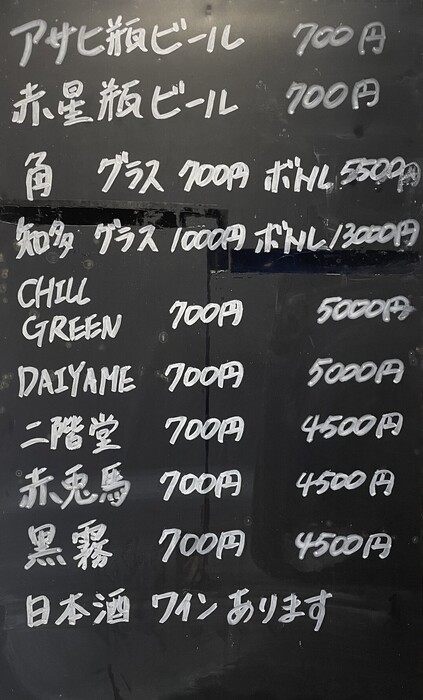 アサヒ瓶ビール 700円
赤星瓶ビール 700円
角 グラス 700円 ボトル 5500円
知多 グラス 1000円 ボトル 13000円
CHILL
GREEN 700円 5000円
DAIYAME 700円 5000円
二階堂 700円 4500円
赤兎馬 700円 4500円
黒霧 700円 4500円
日本酒 ワイン あります